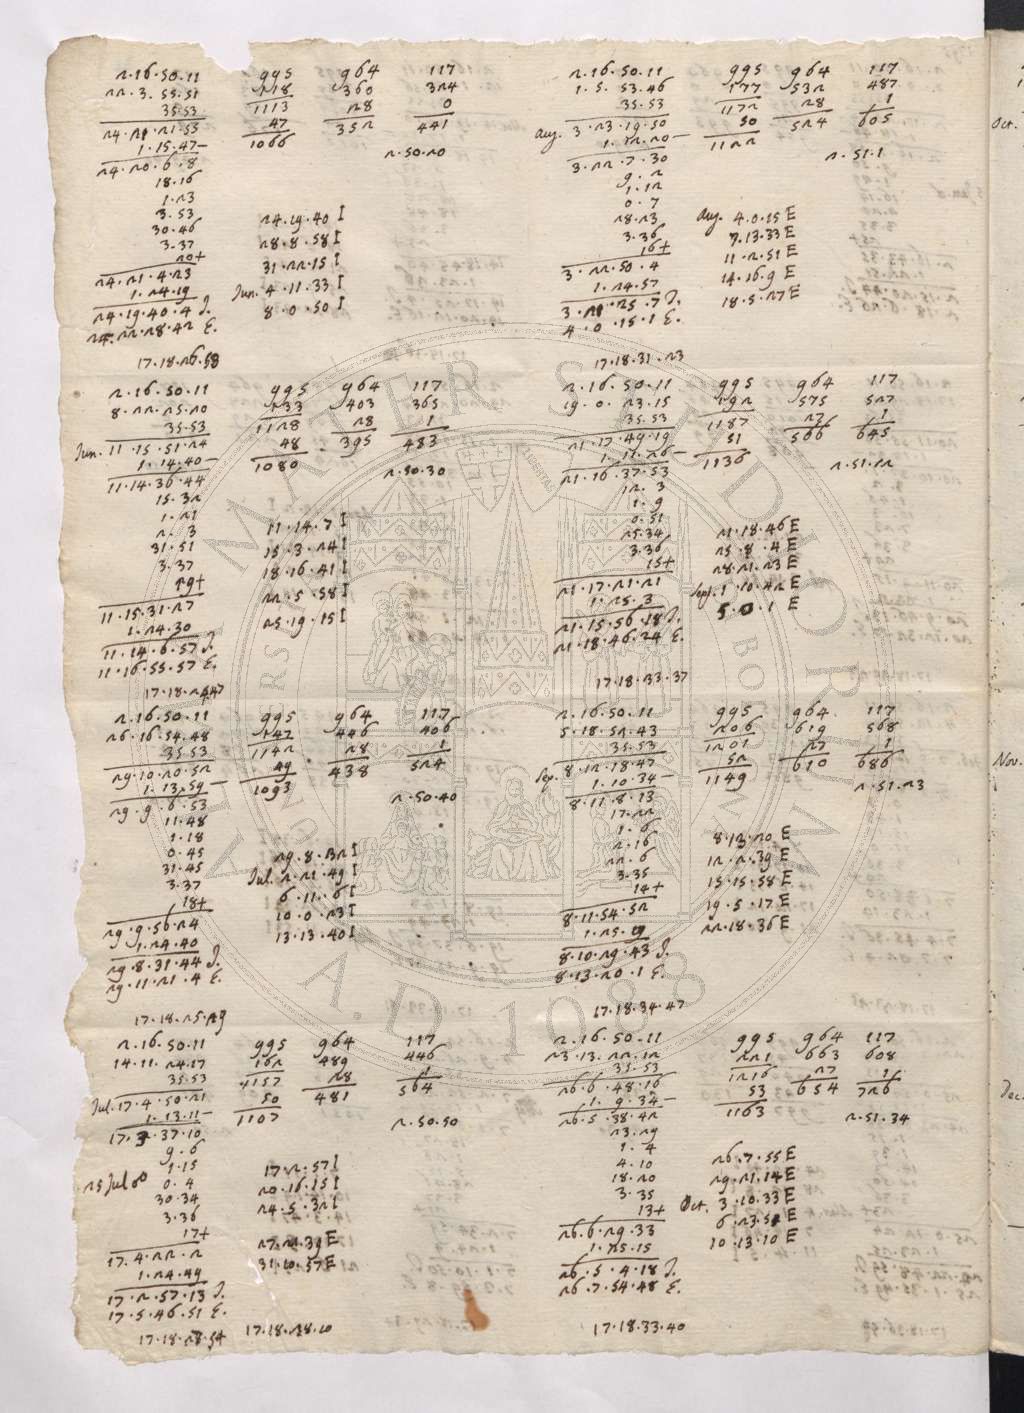 2.16.50.11 995 964 117
22.3.55.51 118 360 324
35.53 1113 28 0
24.21.21.55 47 352 441
1.15.47– 1066
24.20.6.8 2.50.20
18.16
1.23
3.53 24.19.40 I
30.46 28.8.58 I
3.37 31.22.15 I
20+ Jun. 4.11.33 I
24.21.4.23 8.0.50 I
1.24.19
24.19.40.4 J.
24.22.28.42 E.
17.18.26.58
2.16.50.11 995 964 117
8.22.25.20 133 403 365
35.53 1128 28 1
Jun. 11.15.51.24 48 395 483
1.14.40– 1080
11.14.36.44 2.50.30
15.32
1.21
2.3 11.14.7 I
31.51 15.3.24 I
3.37 18.16.41 I
19+ 22.5.58 I
11.15.31.27 25.19.15 I
1.24.30
11.14.6.57 J.
11.16.55.57 E.
17.18.2447
2.16.50.11 995 964 117
26.16.54.48 147 446 406
35.53 1142 28 1
29.10.20.52 49 438 524
1.13.59– 1093
29.9.6.53 2.50.40
11.48
1.18
0.45 29.8.32 I
31.45 Jul. 2.21.49 I
3.37 6.11.6 I
18+ 10.0.23 I
29.9.56.24 13.13.40 I
1.24.40
29.8.31.44 J.
29.11.21.4 E.
17.18.25.29
2.16.50.11 995 964 117
14.11.24.17 162 489 446
35.53 1157 28 1
Jul. 17.4.50.21 50 481 564
1.13.11– 1107
17.3.37.10 2.50.50
9.6
1.15 17.2.57 I
25 Jul 0.4 20.16.15 I
30.34 24.5.32 I
3.36
17+ 27.21.39 E
17.4.22.2 31.10.57 E
1.24.49
17.2.57.13 J.
17.5.46.51 E.
17.18.28.54 17.18.28.10
2.16.50.11 995 964 117
1.5.53.46 177 532 487
35.53 1172 28 1
Aug. 3.23.19.50 50 524 605
1.12.20– 1122
3.22.7.30 2.51.1
9.2
1.12
0.7 Aug. 4.0.15 E
28.23 7.13.33 E
3.36 11.2.51 E
16+ 14.16.9 E
3.22.50.4 18.5.27 E
1.24.57
3.21.25.7 J.
4.0.15.1 E.
17.18.31.23
2.16.50.11 995 964 117
19.0.23.15 192 575 527
35.53 1187 27 1
21.17.49.19 51 566 645
1.11.26– 1136
21.16.37.53 2.51.12
12.3
1.9
0.51 21.18.46 E
25.34 25.8.4 E
3.36 28.21.23 E
15+ Sept. 1.10.42 E
21.17.21.21 5.0.1 E
1.25.3
21.15.56.18 J.
21.18.46.24 E.
17.18.33.37
2.16.50.11 995 964 117
5.18.52.43 206 619 568
35.53 1201 27 1
Sep. 8.12.18.47 52 610 686
1.10.34– 1149
8.11.8.13 2.51.23
17.22
1.6
2.16 8.13.20 E
22.6 12.2.39 E
3.35 15.15.58 E
14+ 19.5.17 E
8.11.54.52 22.18.36 E
1.25.9
8.10.29.43 J.
8.13.20.1 E.
17.18.34.47
2.16.50.11 995 964 117
23.13.22.12 221 663 608
35.53 1216 27 1
26.6.48.16 53 654 726
1.9.34– 1163
26.5.38.42 2.51.34
23.29
1.4
4.10 26.7.55 E
18.20 29.21.14 E
3.35 Oct. 3.10.33 E
13+ 6.23.51 E
26.6.29.33 10.13.10 E
1.25.15
26.5.4.18 J.
26.7.54.48 E.
17.18.33.40
Oct.
Nov.
Dec.
ALMA MATER STUDIORUM
A.D. 1088